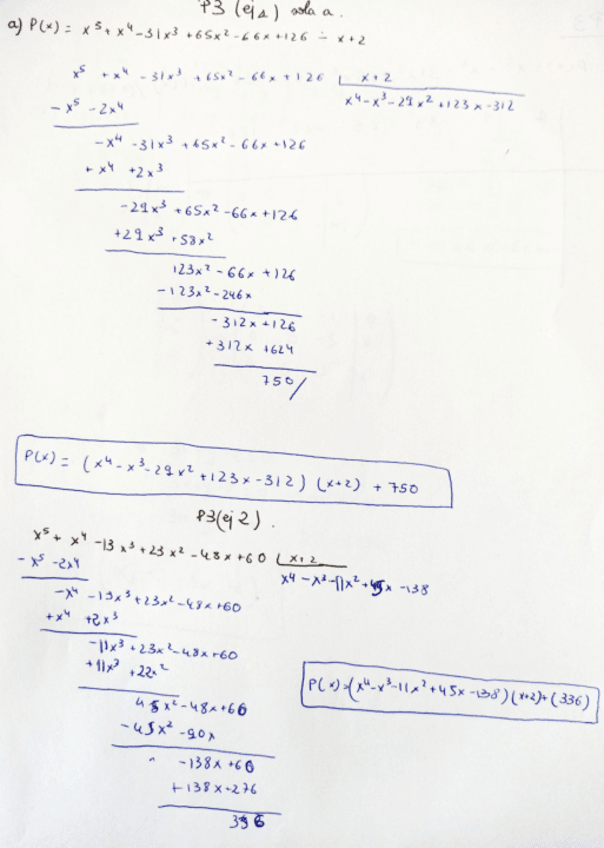 P3 (ej1) solo a.
a) P(x) = x⁵ + x⁴ - 31x³ + 65x² - 66x + 126 ÷ x+2
x⁵ + x⁴ - 31x³ + 65x² - 66x + 126 | x+2
- x⁵ - 2x⁴ x⁴ - x³ - 29x² + 123x - 312
- x⁴ - 31x³ + 65x² - 66x + 126
+ x⁴ + 2x³
- 29x³ + 65x² - 66x + 126
+ 29x³ + 58x²
123x² - 66x + 126
- 123x² - 246x
- 312x + 126
+ 312x + 624
750/
P(x) = (x⁴ - x³ - 29x² + 123x - 312) (x+2) + 750
P3(ej2).
x⁵ + x⁴ - 13x³ + 23x² - 48x + 60 | x+2
- x⁵ - 2x⁴ x⁴ - x³ - 11x² + 45x - 138
- x⁴ - 13x³ + 23x² - 48x + 60
+ x⁴ + 2x³
- 11x³ + 23x² - 48x + 60
+ 11x³ + 22x²
45x² - 48x + 60
- 45x² - 90x
- 138x + 60
+ 138x + 276
336
P(x) = (x⁴ - x³ - 11x² + 45x - 138) (x+2) + (336)